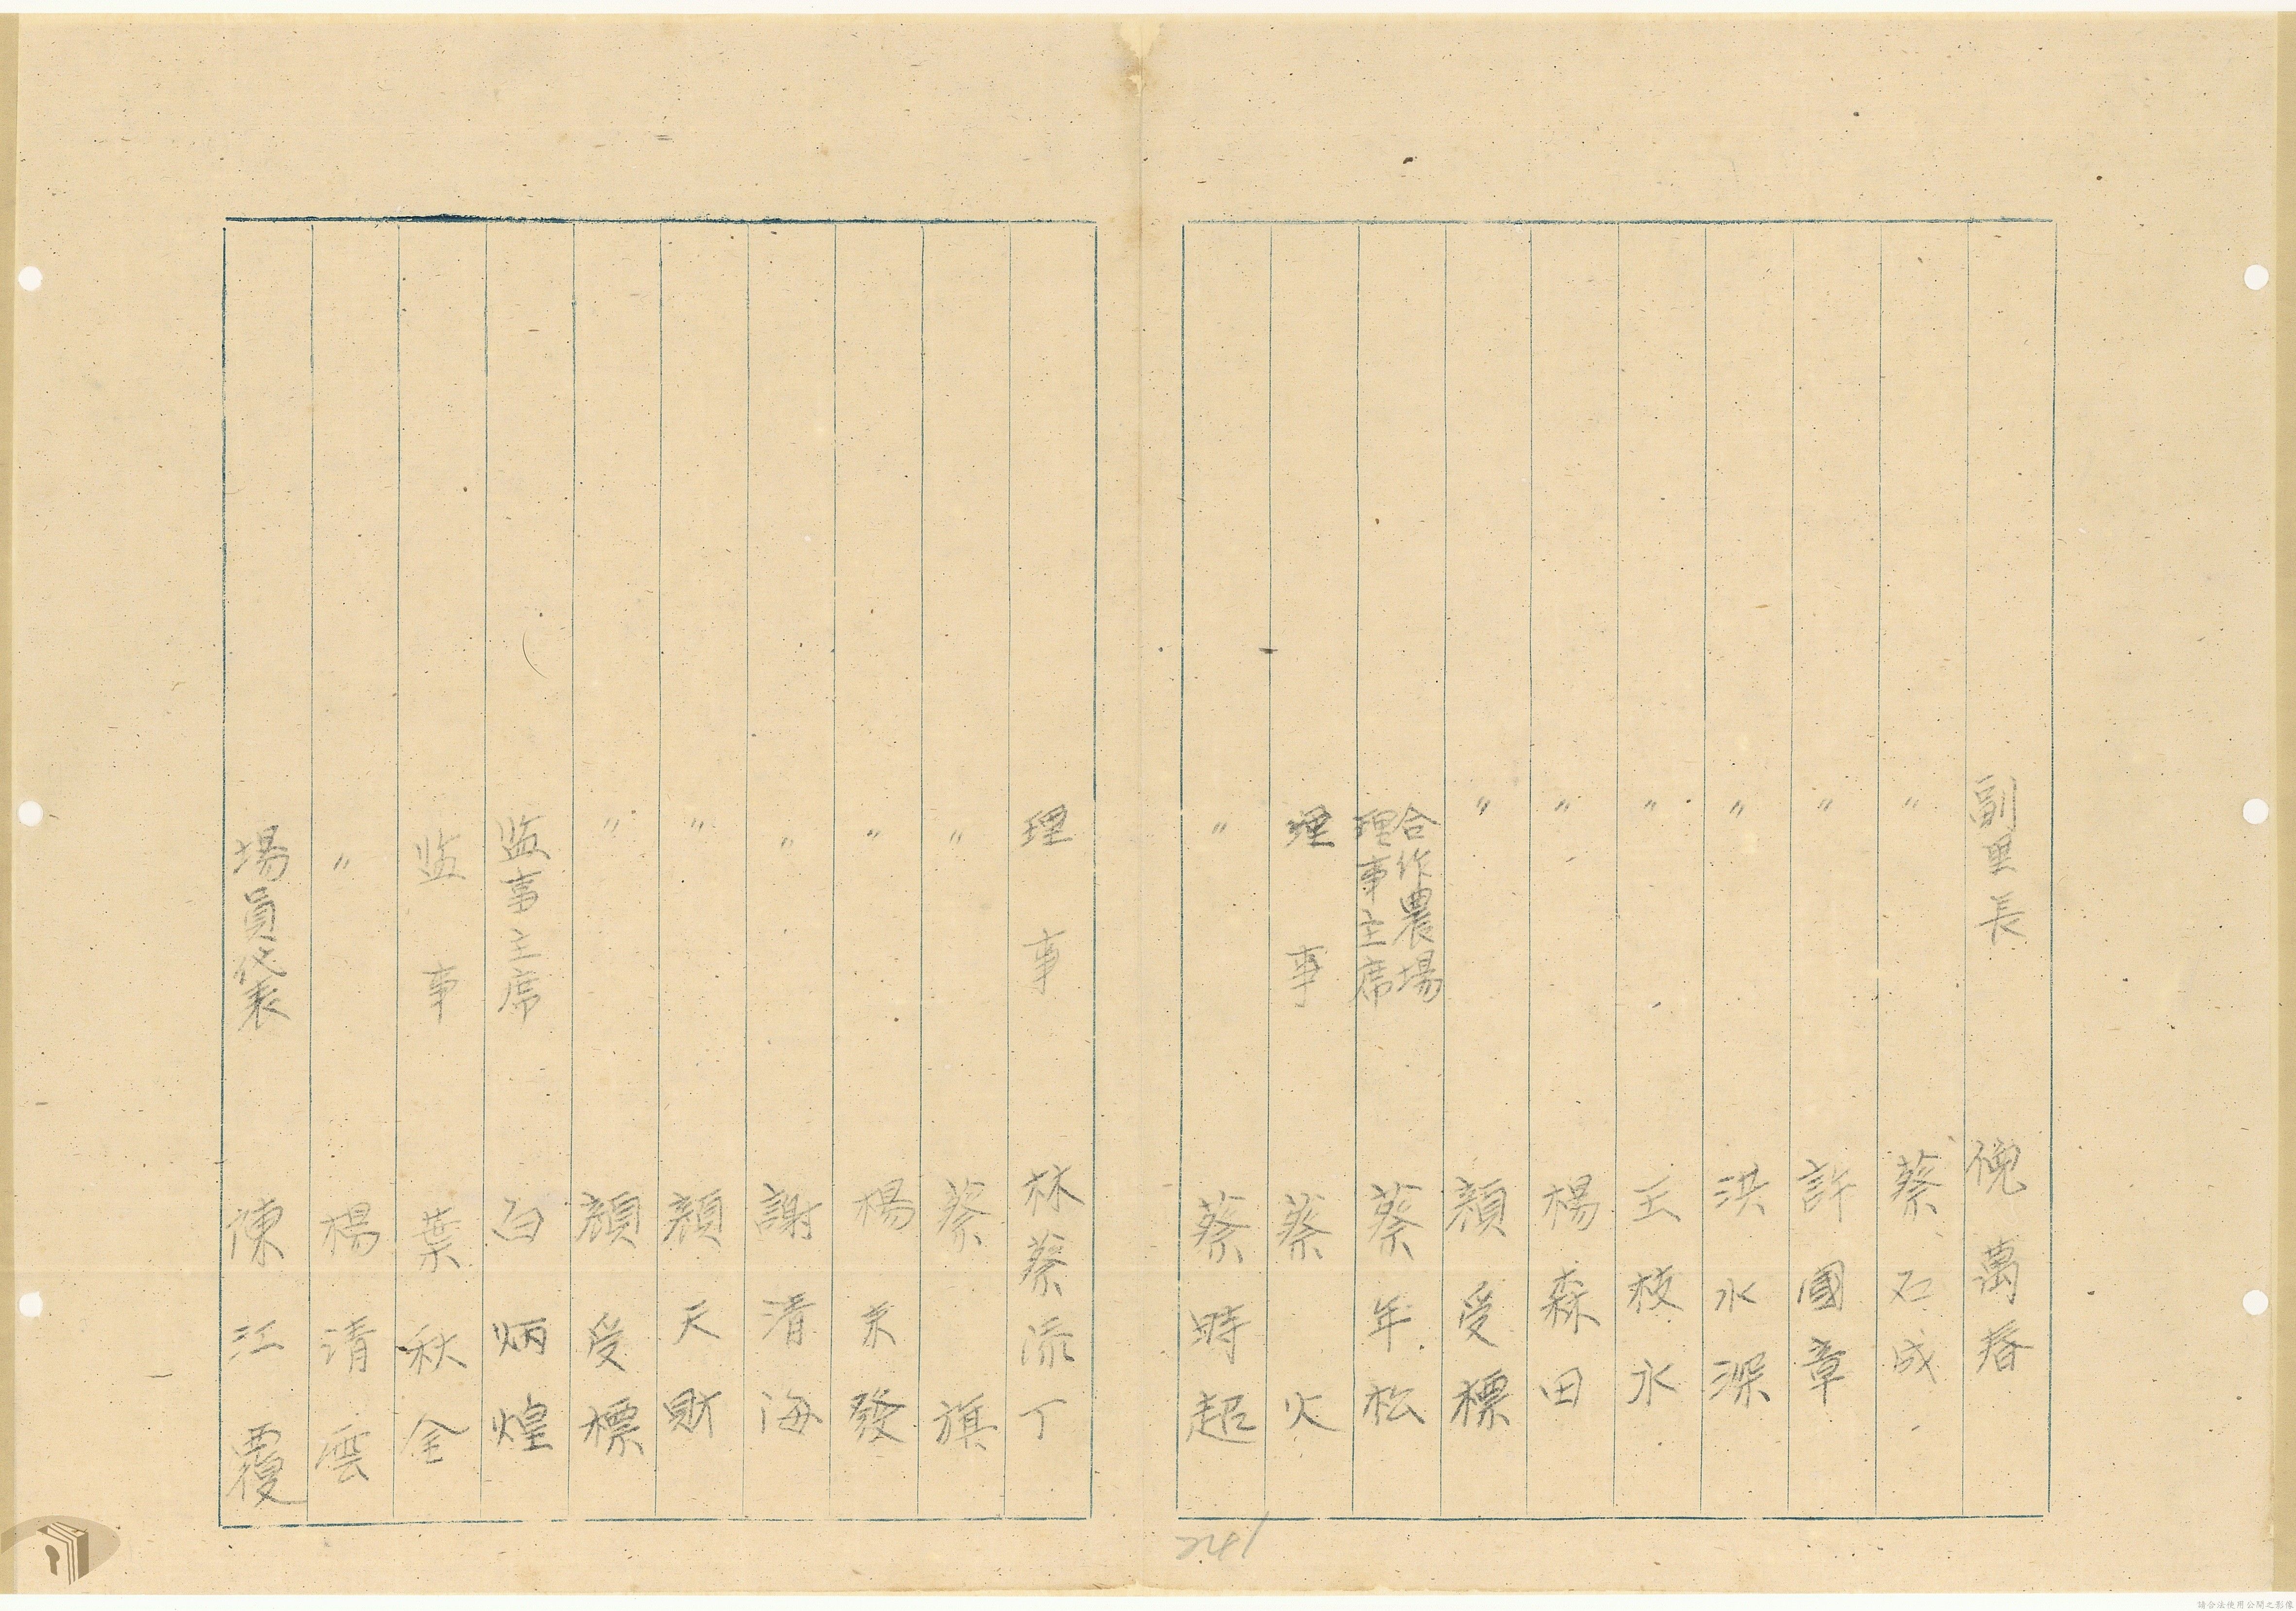 副里長 倪萬春
〃 蔡石成
〃 許國章
〃 洪水深
〃 王枝水
〃 楊森田
〃 顏受標
合作農場理事主席 蔡年松
理事 蔡火
〃 蔡時超
理事 林蔡流丁
〃 蔡旗
〃 楊未發
〃 謝清海
〃 顏天財
〃 顏受標
监事主席 白炳煌
监事 葉秋金
〃 楊清雲
場員代表 陳江覆
241
請合法使用公開之影像